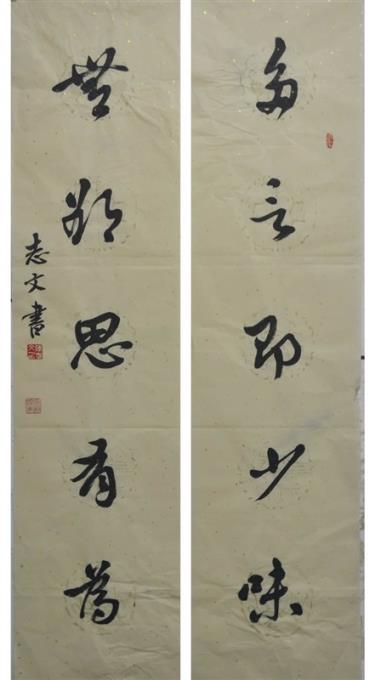 多言即少味
無思有為
志文書